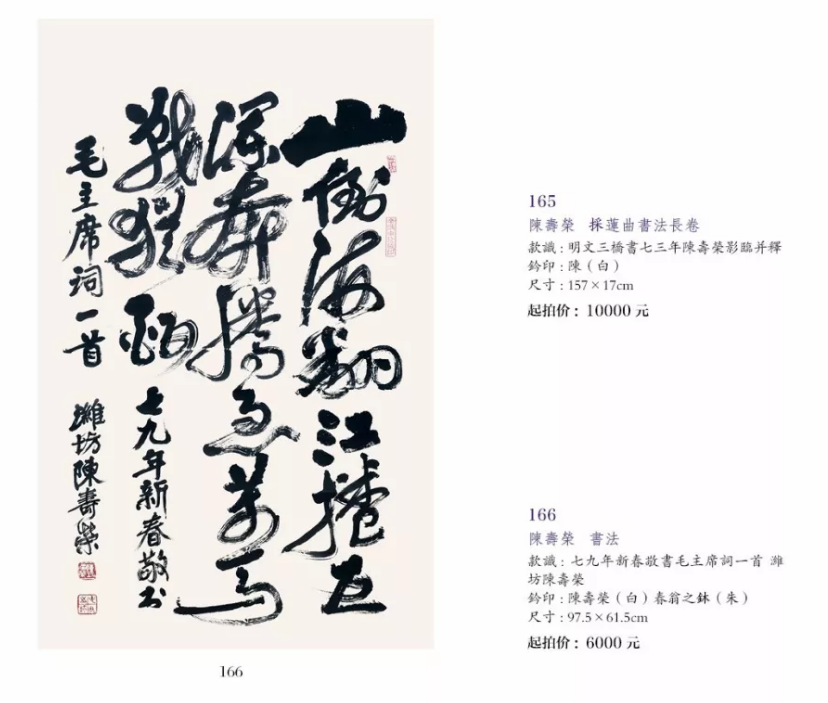 山倒海翻江捲巨
瀾奔騰急萬馬
戰猶酣 七九年新春敬书
毛主席词一首 濰坊陳壽榮
166
165
陳壽榮 採蓮曲書法長卷
款識：明文三橋書七三年陳壽榮影臨并釋
鈐印：陳（白）
尺寸：157×17cm
起拍价：10000 元
166
陳壽榮 書法
款識：七九年新春敬書毛主席詞一首 濰
坊陳壽榮
鈐印：陳壽榮（白）春翁之鉢（朱）
尺寸：97.5×61.5cm
起拍价：6000 元